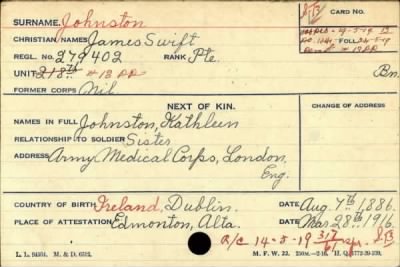 SURNAME. Johnston CARD NO.
CHRISTIAN NAMES James Swift
REGL. NO. 279402 RANK Pte. FOLL.
UNIT 218th # 13 DD Bn.
FORMER CORPS Nil
NEXT OF KIN. CHANGE OF ADDRESS
NAMES IN FULL Johnston, Kathleen
RELATIONSHIP TO SOLDIER Sister
ADDRESS Army Medical Corps, London,
Eng.
COUNTRY OF BIRTH Ireland, Dublin. DATE Aug. 7th 1886.
PLACE OF ATTESTATION Edmonton, Alta. DATE Mar. 28th 1916.
R/C 14-5-19
L. L. 94504. M. & D. 6512. M. F. W. 22.